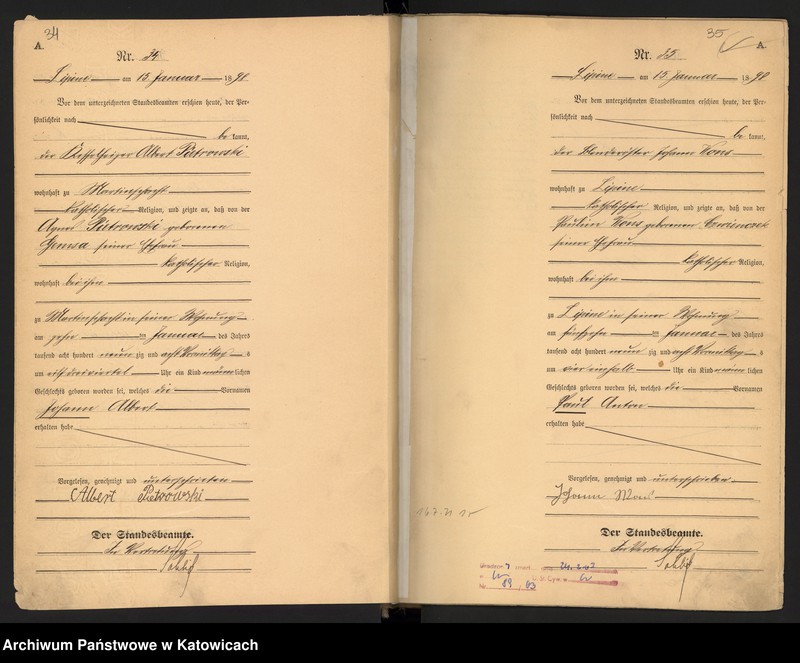 34
A.
Nr. 34
Lipine am 15 Januar 1898.
Vor dem unterzeichneten Standesbeamten erschien heute, der Per-
sönlichkeit nach
be kannt,
der Kesselheizer Albert Pietrowski
wohnhaft zu Martinschacht
katholischer Religion, und zeigte an, daß von der
Agnes Pietrowski geborenen
seiner Ehefrau
katholischer Religion,
wohnhaft bei ihm
zu Martinschacht in seiner Wohnung
am zehn ten Januar des Jahres
tausend acht hundert neun zig und acht Vormittags
um elf dreiviertel Uhr ein Kind männlichen
Geschlechts geboren worden sei, welches die Vornamen
Johann Albert
erhalten habe
Vorgelesen, genehmigt und unterschrieben
Albert Pietrowski
Der Standesbeamte.
In Vertretung
35
A.
Nr. 35
Lipine am 15 Januar 1898
Vor dem unterzeichneten Standesbeamten erschien heute, der Per-
sönlichkeit nach
be kannt,
der Johann Wons
wohnhaft zu Lipine
katholischer Religion, und zeigte an, daß von der
Pauline Wons geborenen
seiner Ehefrau
katholischer Religion,
wohnhaft bei ihm
zu Lipine in seiner Wohnung
am fünfzehn ten Januar des Jahres
tausend acht hundert neun zig und acht Vormittags
um vier einhalb Uhr ein Kind männlichen
Geschlechts geboren worden sei, welches die Vornamen
Paul Anton
erhalten habe
Vorgelesen, genehmigt und unterschrieben
Johann
Der Standesbeamte.
In Vertretung
Archiwum Państwowe w Katowicach